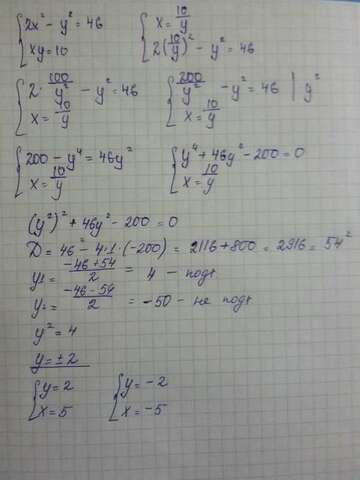 {2x² - y² = 46 {x = 10/y
{xy = 10 {2(10/y)² - y² = 46
{2 · 100/y² - y² = 46 {200/y² - y² = 46 | y²
{x = 10/y {x = 10/y
{200 - y⁴ = 46y² {y⁴ + 46y² - 200 = 0
{x = 10/y {x = 10/y
(y²)² + 46y² - 200 = 0
D = 46² - 4·1·(-200) = 2116 + 800 = 2916 = 54²
y₁ = (-46 + 54)/2 = 4 - подх
y₂ = (-46 - 54)/2 = -50 - не подх
y² = 4
y = ± 2
{y = 2 {y = -2
{x = 5 {x = -5